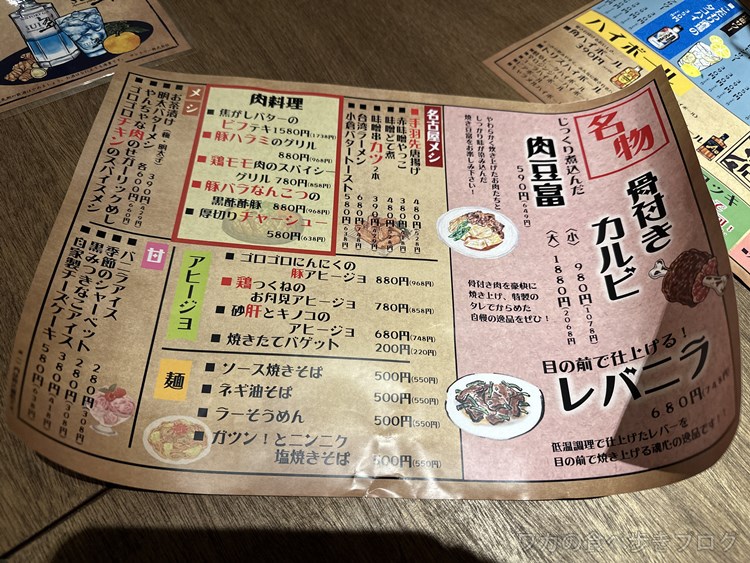 名物
骨付き
カルビ
(小) 980円 1078円
(大) 1880円 2068円
骨付き肉を豪快に
焼き上げ、特製の
タレでからめた
自慢の逸品をぜひ!
じっくり煮込んだ
肉豆富
590円(649円)
やわらかく炊き上げたお肉たちと
しっかり味が染み込んだ
焼き豆富をお楽しみ下さい!
目の前で仕上げる!
レバニラ
680円(748円)
低温調理で仕上げたレバーを
目の前で焼き上げる魂心の逸品です!
名古屋メシ
■手羽先唐揚げ
■赤味噌やっこ
■味噌どて煮
■味噌串カツ2本
■台湾ラーメン
■小倉バタートースト
肉料理
■焦がしバターの
ビフテキ1580円(1738円)
■豚ハラミのグリル
880円(968円)
■鶏モモ肉のスパイシー
グリル 780円(858円)
■豚バラなんこつの
黒酢酢豚 880円(968円)
■厚切りチャーシュー
580円(638円)
メシ
■お茶漬け(梅・明太子) 390円
■明太バターメシ
■やんちゃな肉のせガーリックめし
■ゴロゴロチキンのスパイスメシ
アヒージョ
■ゴロゴロにんにくの
豚アヒージョ 880円(968円)
■鶏つくねの
お月見アヒージョ 780円(858円)
■砂肝とキノコの
アヒージョ 680円(748円)
■焼きたてバゲット 200円(220円)
麺
■ソース焼きそば 500円(550円)
■ネギ油そば 500円(550円)
■ラーそうめん 500円(550円)
■ガツン!とニンニク
塩焼きそば 500円(550円)
甘
■バニラアイス 280円 308
■季節のシャーベット 280円 308
■黒みつきなこアイス 380円 418
■自家製チーズケーキ 580円
ハイボール
■角ハイボール 390円
ワカの食べ歩きブログ